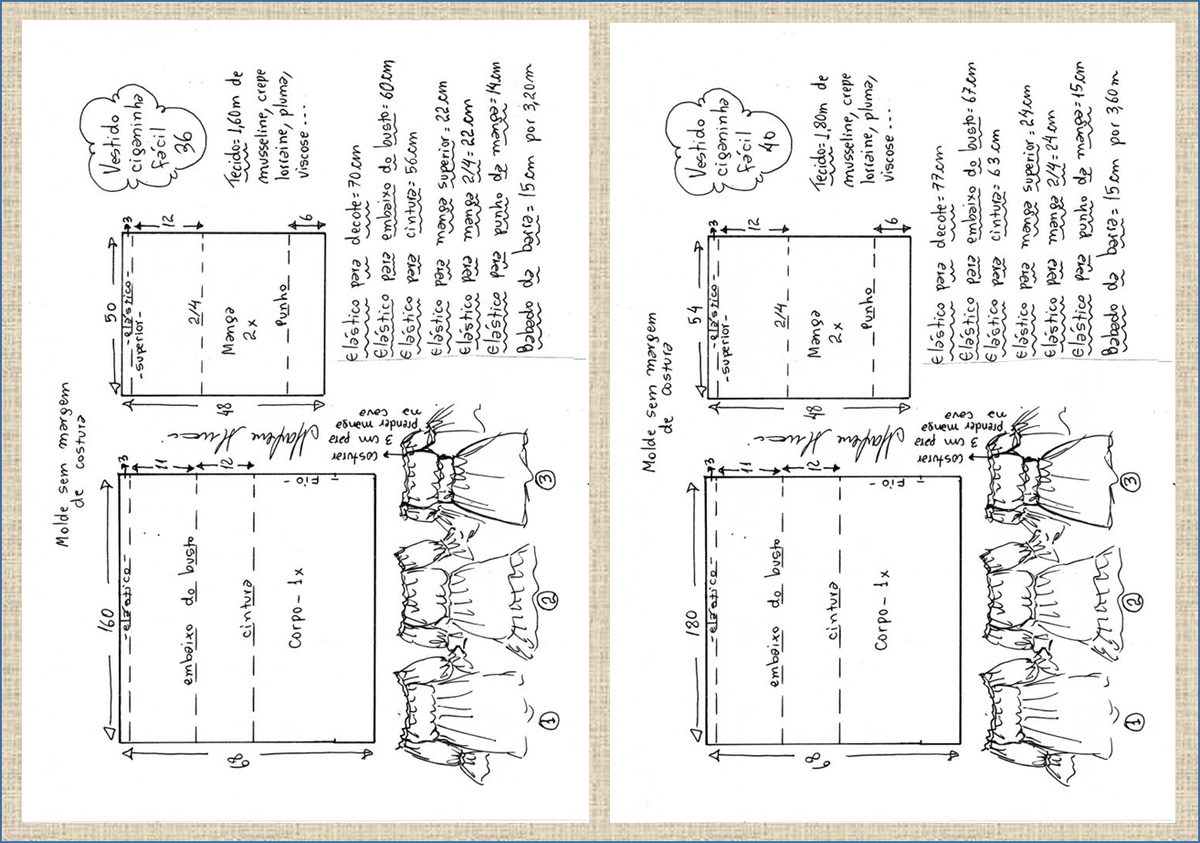 Molde sem margem
de costura
Vestido
ciganinha
fácil
36
160
-elástico-
3
11
embaixo do busto
12
cintura
Corpo-1x
Fio
68
50
-elástico-
-superior-
3
12
2/4
Manga
2x
Punho
6
48
Tecido=1,60m de
musseline, crepe
loraine, pluma,
viscose....
Marlene Mukai
Elástico para decote=70cm
Elástico para embaixo do busto=60cm
Elástico para cintura=56cm
Elástico para manga superior=22cm
Elástico para manga 2/4=22cm
Elástico para punho da manga=14cm
Babado da barra=15cm por 3,20m
costurar
3 cm para
prender manga
na cava
1
2
3
Molde sem margem
de costura
Vestido
ciganinha
fácil
40
180
-elástico-
3
11
embaixo do busto
12
cintura
Corpo-1x
Fio
68
54
-elástico-
-superior-
3
12
2/4
Manga
2x
Punho
6
48
Tecido=1,80m de
musseline, crepe
loraine, pluma,
viscose....
Marlene Mukai
Elástico para decote=77cm
Elástico para embaixo do busto=67cm
Elástico para cintura=63cm
Elástico para manga superior=24cm
Elástico para manga 2/4=24cm
Elástico para punho da manga=15cm
Babado da barra=15cm por 3,60m
costurar
3 cm para
prender manga
na cava
1
2
3